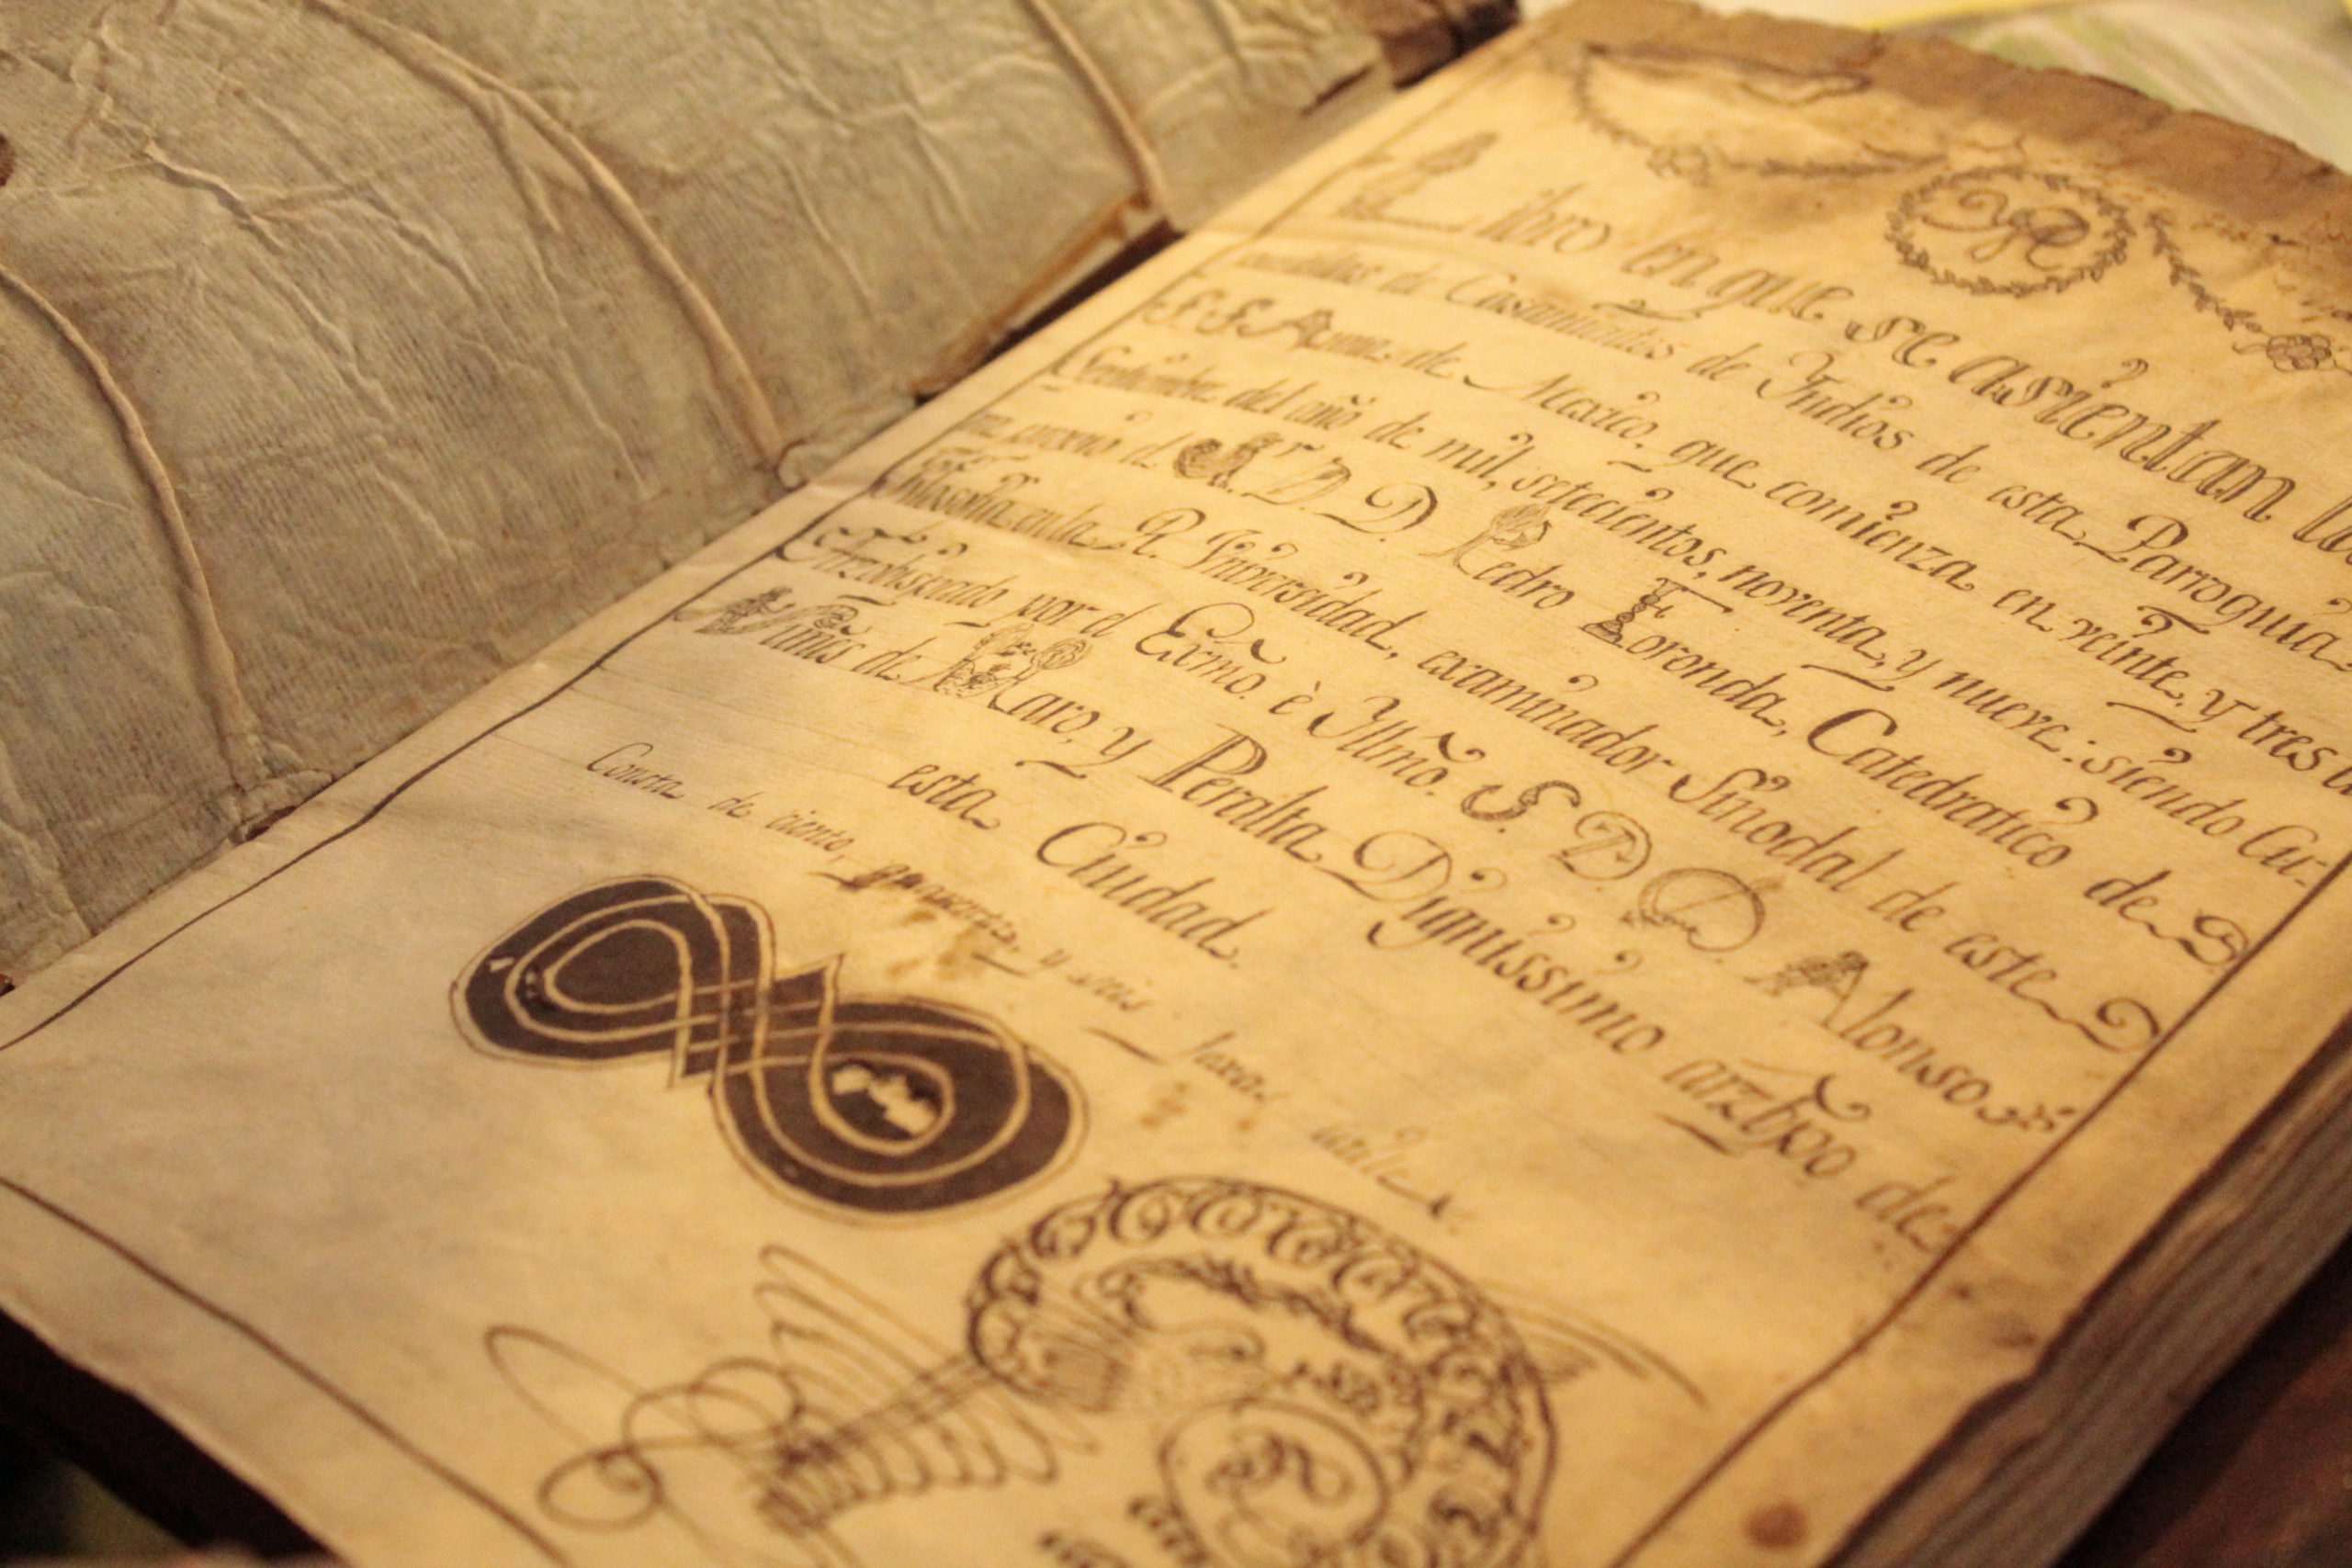 Libro en que se asientan
de Casamientos de Indios de esta Parroquia
de Mexico. que comienza en veinte, y tres
Septiembre del año de mil, setecientos, noventa, y nueve: siendo Cu-
D. D. Pedro Foronda, Catedratico de
Filosofia en la R. Universidad, examinador Sinodal de este
Arzobispado por el Exmô. è Yllmô. S. D. D. Alonso
Nuñes de Haro, y Peralta Dignissimo arzbpo de
esta Ciudad.
Consta de ciento, quarenta, y seis foxas utiles.